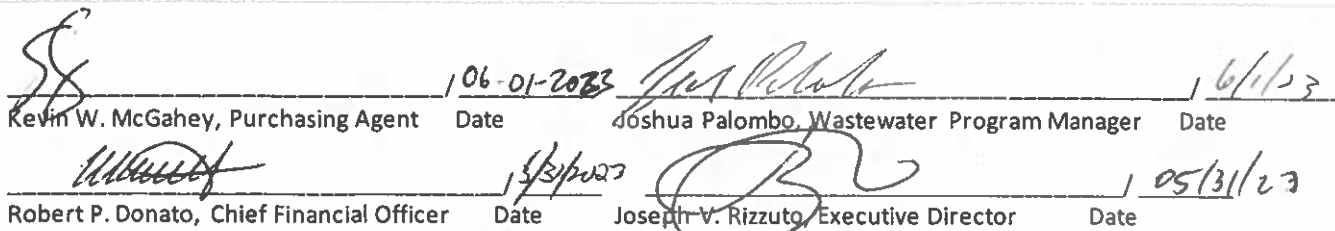 / 06-01-2023 / 6/1/23
Kevin W. McGahey, Purchasing Agent Date Joshua Palombo, Wastewater Program Manager Date
/ 5/31/2023 / 05/31/23
Robert P. Donato, Chief Financial Officer Date Joseph V. Rizzuto, Executive Director Date